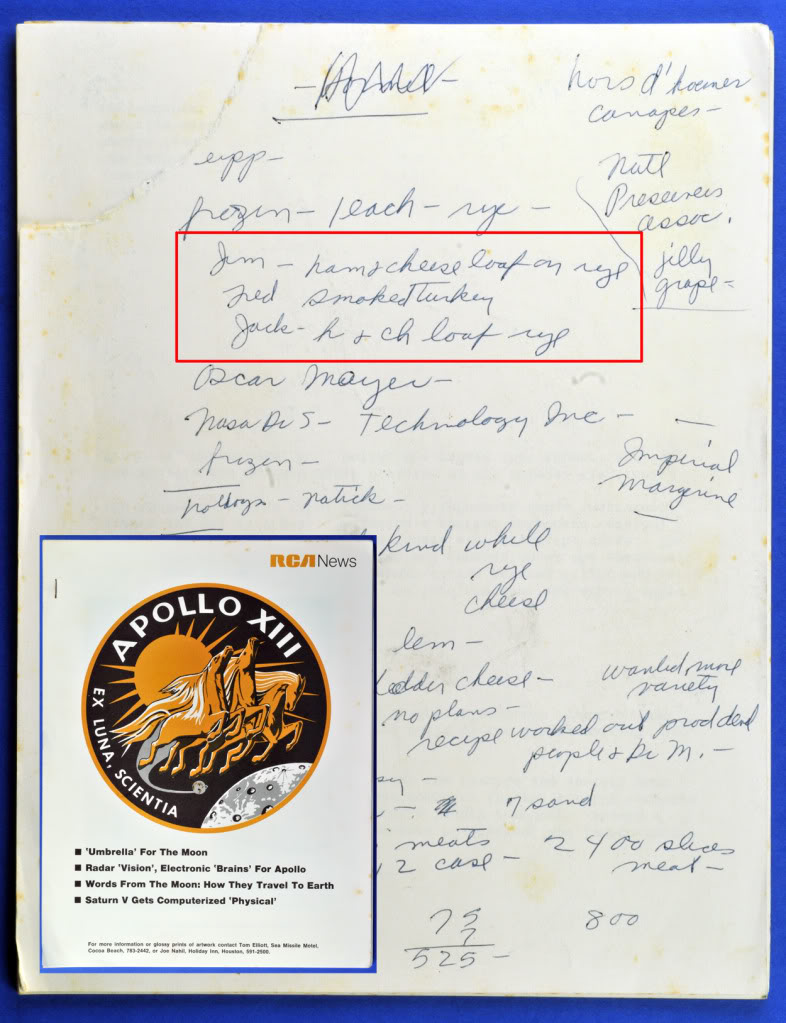 hors d'hoerner
canapes -
frozen - peach - rye -
Natl
Preservers
assoc.
jelly
grape -
Jim - ham & cheese loaf on rye
Fred smoked turkey
Jack - h & ch loaf rye
Oscar Mayer -
Nasa Dr S - Technology Inc -
frozen -
Imperial
Margerine
natick -
kind while
rye
cheese
lem -
cheese -
wanted more
variety
no plans -
recipe worked out
people & Dr M. -
7 sand
meats
2 400 slices
2 case -
meat -
75
7
525 -
800
RCA News
APOLLO XIII
EX LUNA, SCIENTIA
■ 'Umbrella' For The Moon
■ Radar 'Vision', Electronic 'Brains' For Apollo
■ Words From The Moon: How They Travel To Earth
■ Saturn V Gets Computerized 'Physical'
For more information or glossy prints of artwork contact Tom Elliott, Sea Missile Motel,
Cocoa Beach, 783-2442, or Joe Nahil, Holiday Inn, Houston, 591-2500.